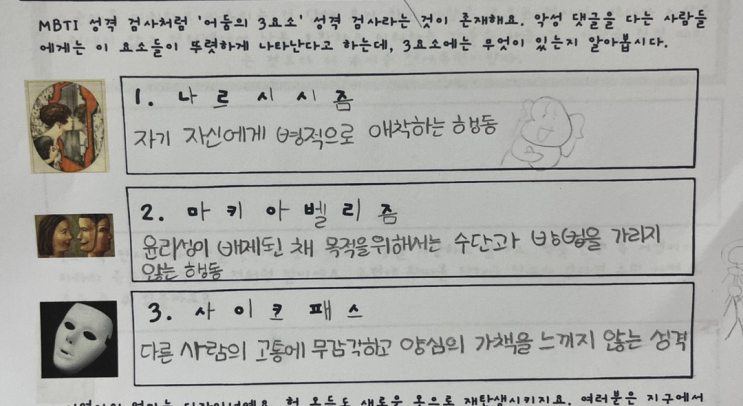 MBTI 성격 검사처럼 '어둠의 3요소' 성격 검사라는 것이 존재해요. 악성 댓글을 다는 사람들
에게는 이 요소들이 뚜렷하게 나타난다고 하는데, 3요소에는 무엇이 있는지 알아봅시다.
1. 나르시시즘
자기 자신에게 병적으로 애착하는 행동
2. 마키아벨리즘
윤리성이 배제된 채 목적을위해서는 수단과 방법을 가리지
않는 행동
3. 사이코패스
다른 사람의 고통에 무감각하고 양심의 가책을 느끼지 않는 성격
새로운 옷으로 재탄생시키지요. 여러분은 지구에서